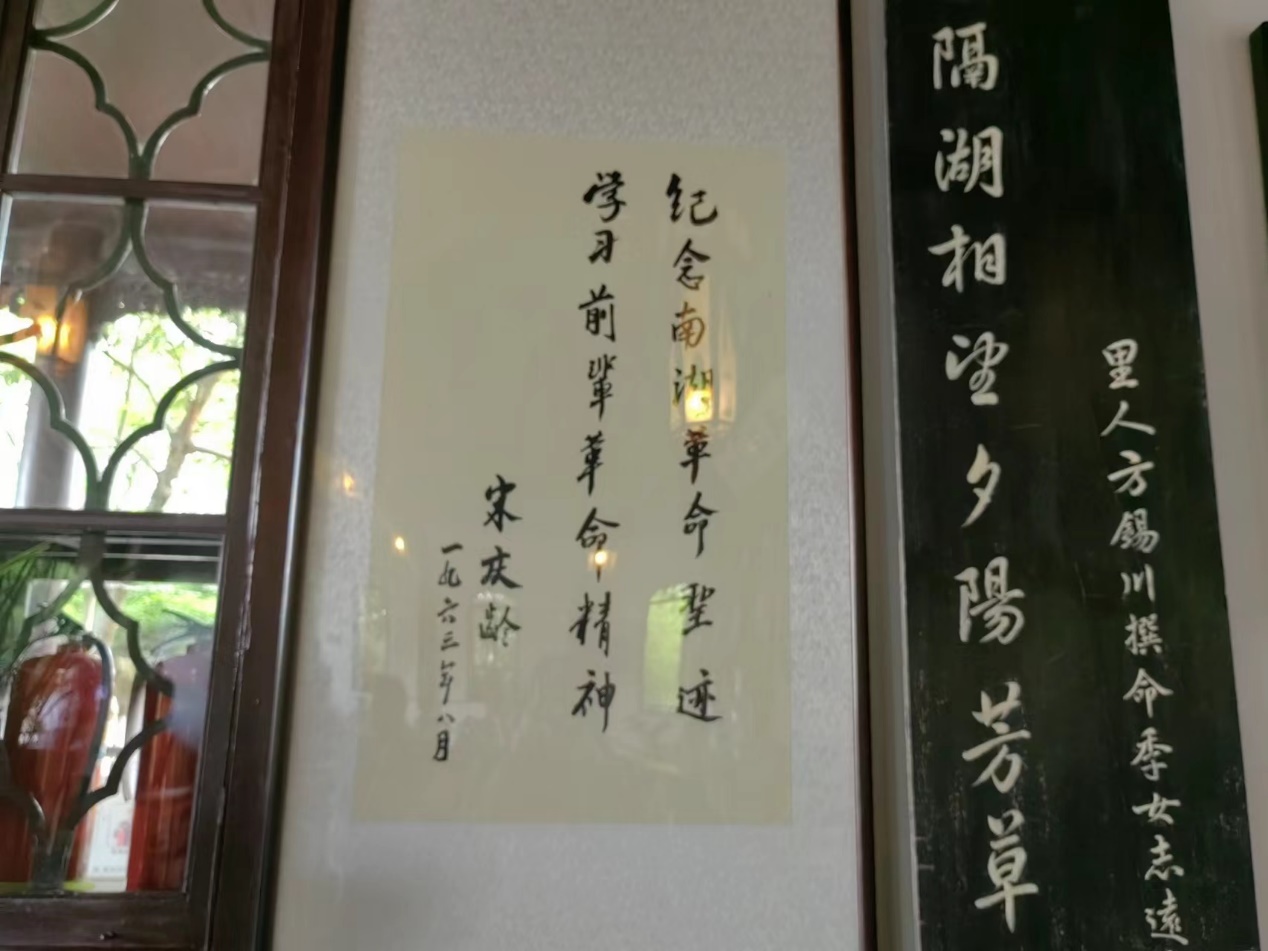 隔湖相望夕陽芳草
里人方錫川撰命季女志遠
纪念南湖革命聖迹
学习前辈革命精神
宋庆龄
一九六三年八月